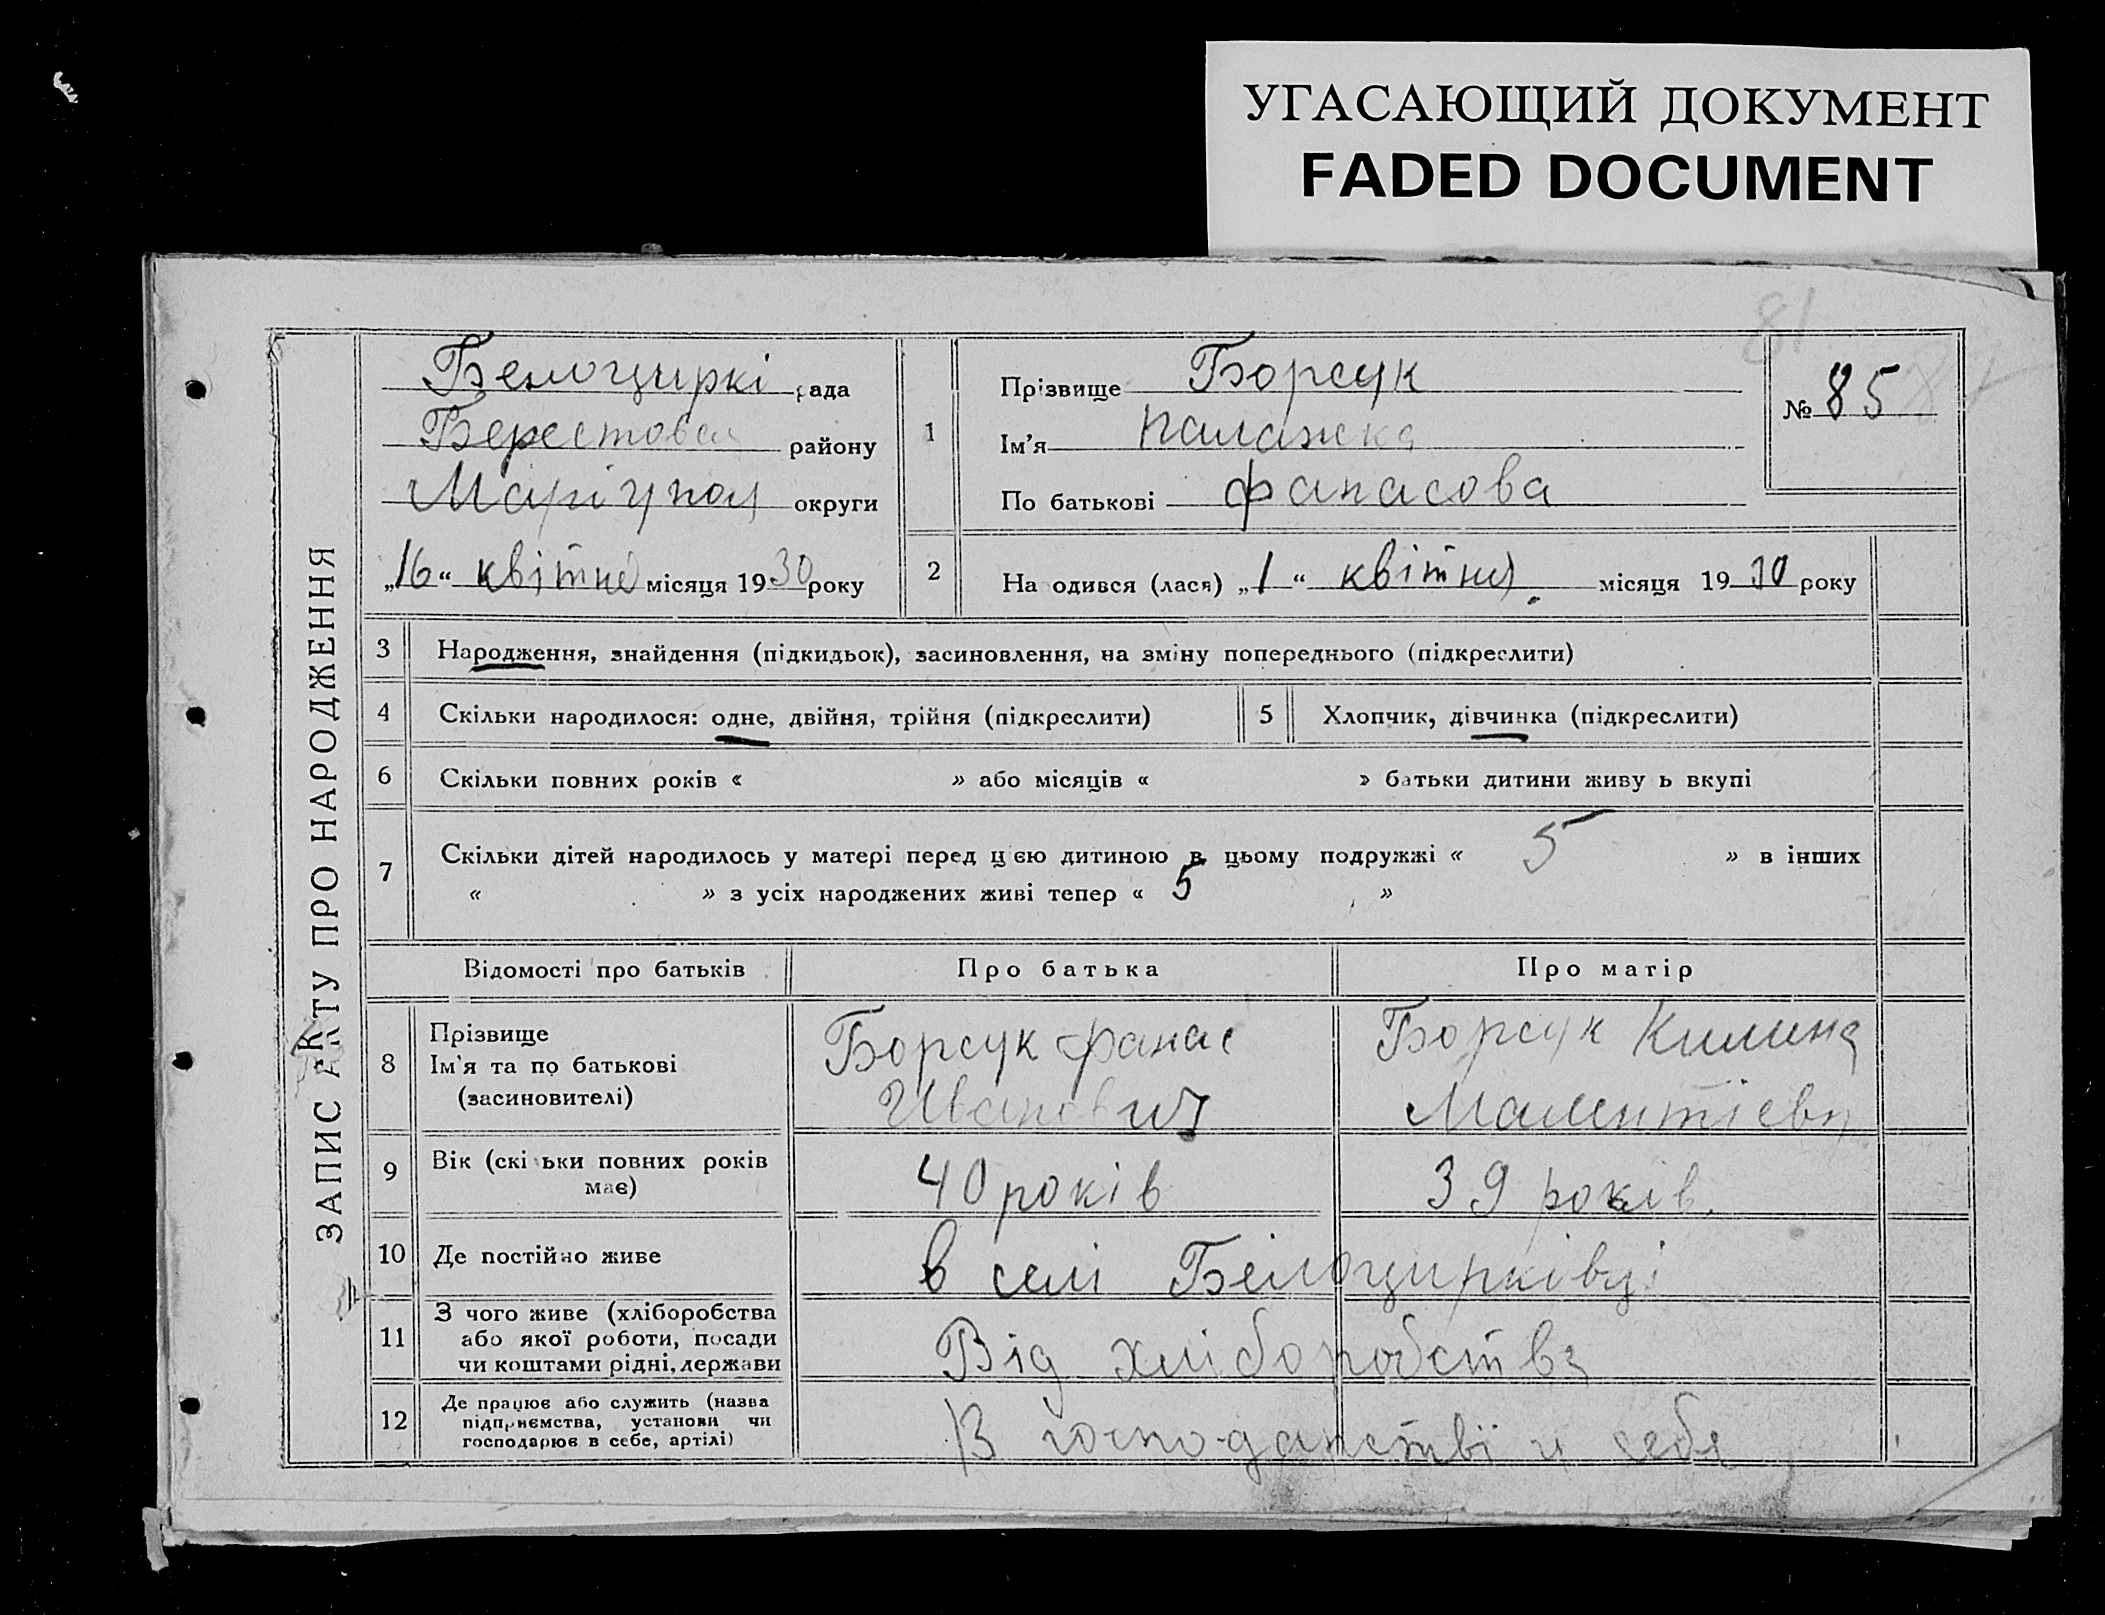 УГАСАЮЩИЙ ДОКУМЕНТ
FADED DOCUMENT
81
ЗАПИС АКТУ ПРО НАРОДЖЕННЯ
Белоциркі рада
Берестовск району
Маріупол округи
„16“ квітня місяця 1930 року
1
Прізвище Борсук
Ім’я Палажка
По батькові Фанасова
№ 85
2
На одився (лася) „1“ квітня місяця 1930 року
3 Народження, знайдення (підкидьок), засиновлення, на зміну попереднього (підкреслити)
4 Скільки народилося: одне, двійня, трійня (підкреслити) 5 Хлопчик, дівчинка (підкреслити)
6 Скільки повних років « » або місяців « » батьки дитини живу ь вкупі
7 Скільки дітей народилось у матері перед цією дитиною в цьому подружжі « 5 » в інших
« » з усіх народжених живі тепер « 5 »
Відомості про батьків Про батька Про матір
8 Прізвище
Ім’я та по батькові
(засиновителі)
Борсук Фанас
Иванович
Борсук Килина
Малентіевн
9 Вік (скі ьки повних років
має)
40 років 39 років.
10 Де постійно живе в селі Білоцирківці
11 З чого живе (хліборобства
або якої роботи, посади
чи коштами рідні, держави
Від хліборобства
12 Де працює або служить (назва
підприємства, установи чи
господарює в себе, артілі)
В господарстві у себя